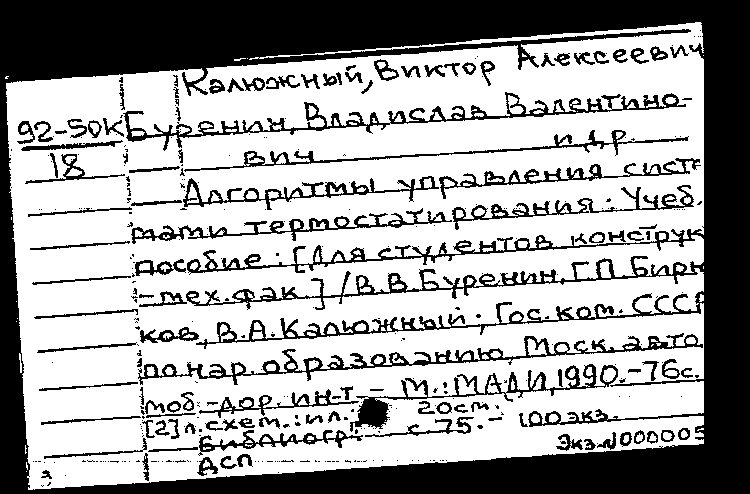 Калюжный, Виктор Алексеевич
92-50К Буренин, Владислав Валентино-
18 вич и др.
Алгоритмы управления систе
мами термостатирования: Учеб.
пособие: [Для студентов конструк
-мех. фак.] / В.В. Буренин, Г.П. Бирю
ков, В.А. Калюжный; Гос. ком. СССР
по нар. образованию, Моск. авто
моб.-дор. ин-т. - М.: МАДИ, 1990. - 76с.
[2] л. схем.: ил.; 20см.
Библиогр.: с 75. - 100 экз.
Экз. N000005
ДСП